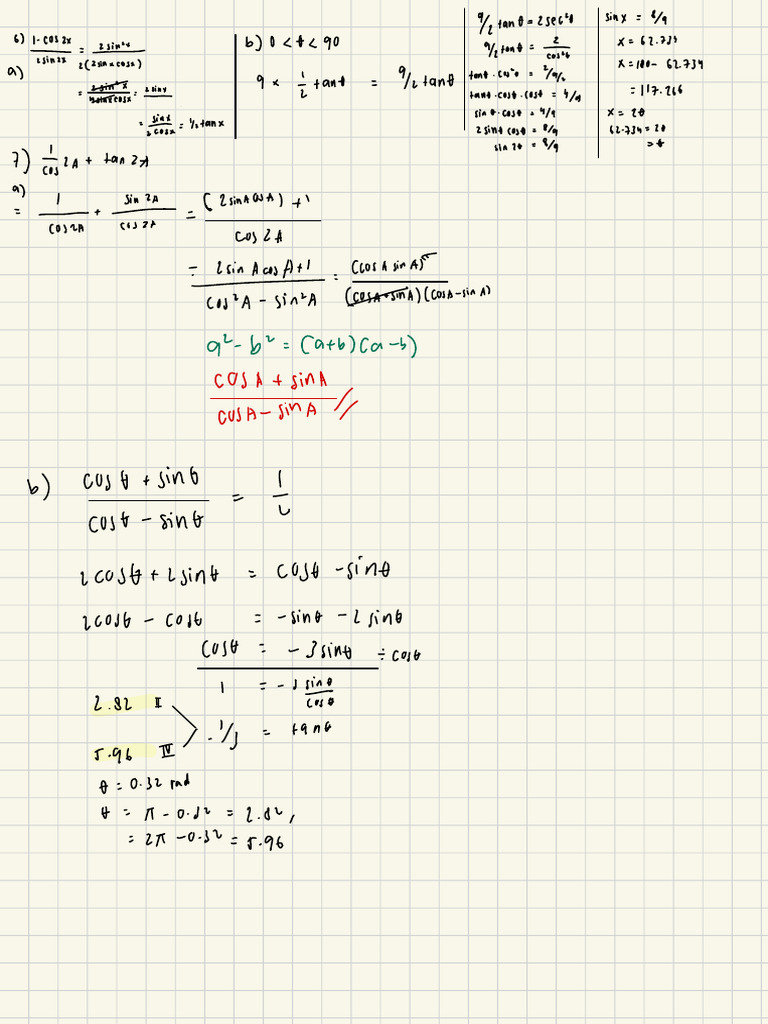 6)
a)
(1-cos2x)/(2sin2x) = (2sin²x)/(2(2sinxcosx))
= (2sin²x)/(4sinxcosx) = 2sinx
= sinx/(2cosx) = 1/2 tanx
b) 0 < θ < 90
9 × 1/2 tanθ = 9/2 tanθ
9/2 tanθ = 2sec²θ
9/2 tanθ = 2/cos²θ
tanθ · cos²θ = 2/9/2
tanθ · cosθ · cosθ = 4/9
sinθ · cosθ = 4/9
2sinθcosθ = 8/9
sin2θ = 8/9
sinx = 8/9
x = 62.734
x = 180 - 62.734
= 117.266
x = 2θ
62.734 = 2θ
= θ
7) 1/cos 2A + tan 2A
a)
= 1/cos2A + sin2A/cos2A = ((2sinAcosA) + 1)/cos2A
= (2sinAcosA + 1)/(cos²A - sin²A) = (cosA sinA)²/((cosA+sinA)(cosA-sinA))
a² - b² = (a+b)(a-b)
(cosA + sinA)/(cosA - sinA) //
b) (cosθ + sinθ)/(cosθ - sinθ) = 1/2
2cosθ + 2sinθ = cosθ - sinθ
2cosθ - cosθ = -sinθ - 2sinθ
cosθ = -3sinθ ÷ cosθ
1 = -3 sinθ/cosθ
2.82 II
-1/3 = tanθ
5.96 IV
θ = 0.32 rad
θ = π - 0.32 = 2.82,
= 2π - 0.32 = 5.96